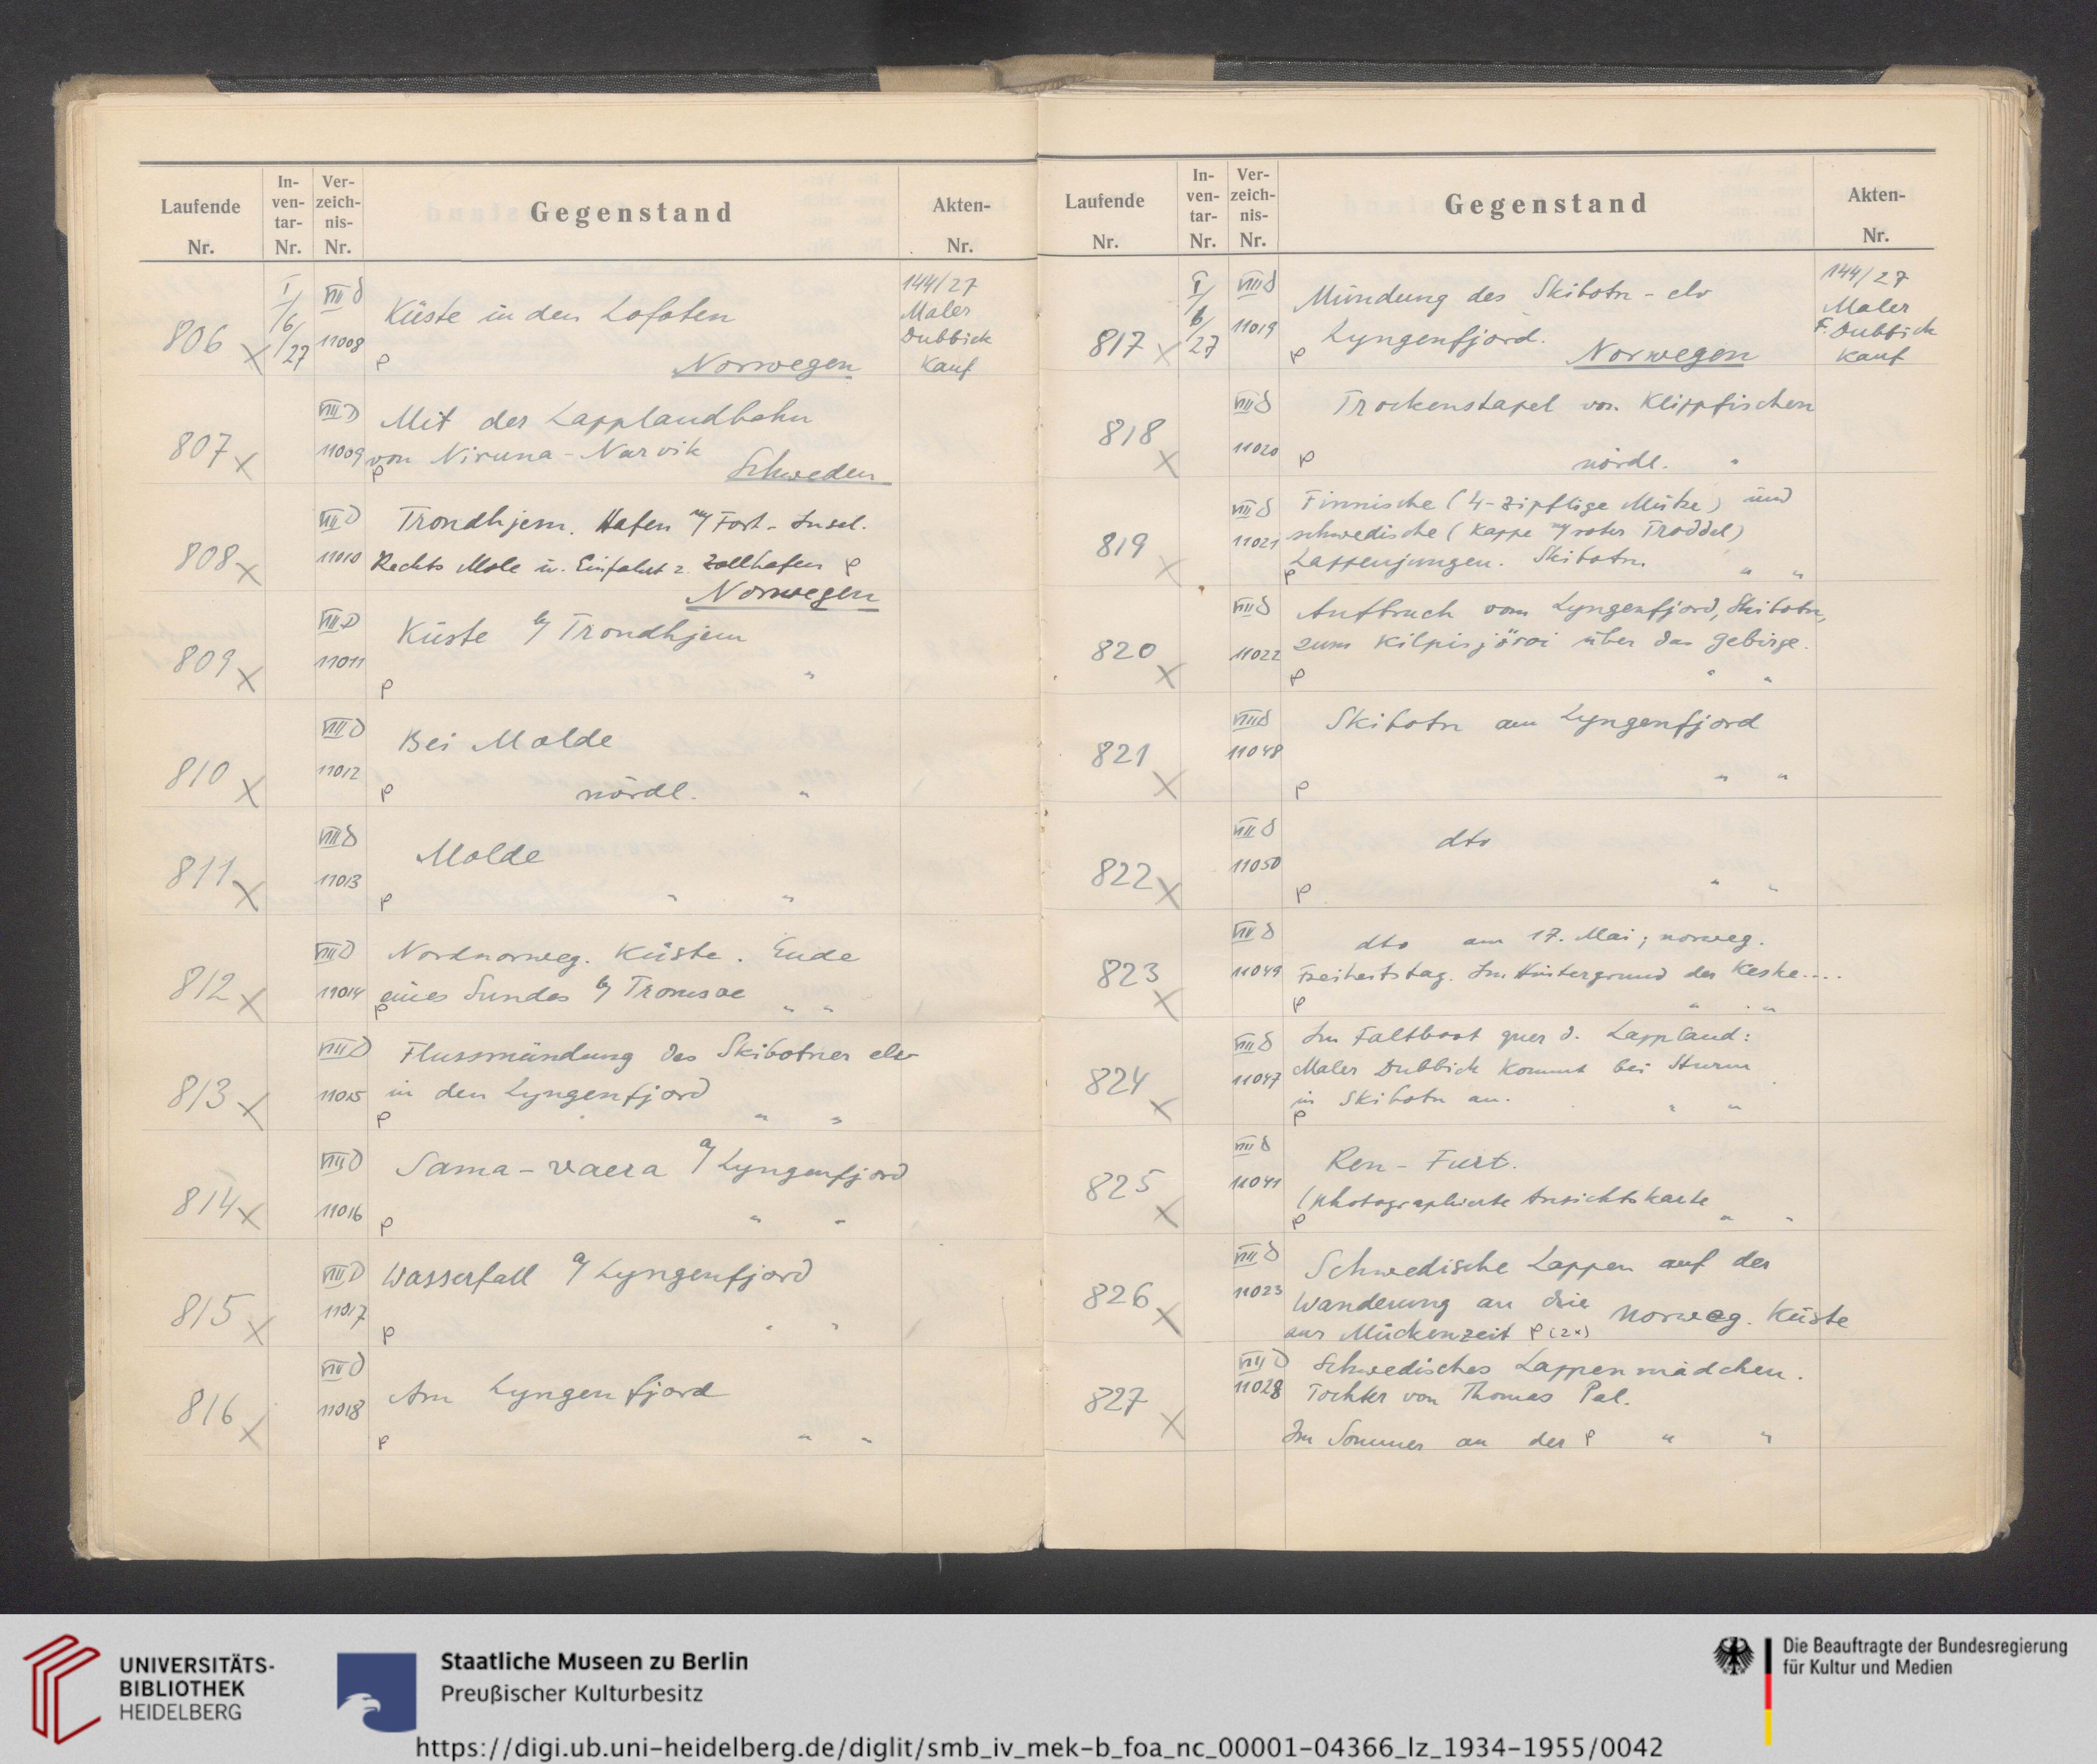 Laufende Nr.
In-ven-tar-Nr.
Ver-zeich-nis-Nr.
Gegenstand
Akten-Nr.
806 x
I/6/27
VIII D 11008
Küste in den Lofoten
P
Norwegen
144/27
Maler
Dubbick
Kauf
807 x
VIII D 11009
Mit der Lapplandbahn
von Niruna - Narvik
P
Schweden
808 x
VIII D 11010
Trondhjem. Hafen m/ Fort-Insel.
Rechts Mole u. Einfahrt z. Zollhafen P
Norwegen
809 x
VIII D 11011
Küste b/ Trondhjem
P "
810 x
VIII D 11012
Bei Molde
P nördl. "
811 x
VIII D 11013
Molde
P " "
812 x
VIII D 11014
Nordnorweg. Küste. Ende
eines Sundes b/ Tromsoe
P " "
813 x
VIII D 11015
Flussmündung des Skibotner elv
in den Lyngenfjord
P " "
814 x
VIII D 11016
Sama-vaera a/ Lyngenfjord
P " "
815 x
VIII D 11017
Wasserfall a/ Lyngenfjord
P " "
816 x
VIII D 11018
Am Lyngenfjord
P " "
Laufende Nr.
In-ven-tar-Nr.
Ver-zeich-nis-Nr.
Gegenstand
Akten-Nr.
817 x
I/6/27
VIII D 11019
Mündung des Skibotn-elv
Lyngenfjord.
P
Norwegen
144/27
Maler
F. Dubbick
Kauf
818 x
VIII D 11020
Trockenstapel von Klippfischen
P nördl. "
819 x
VIII D 11021
Finnische (4-zipflige Mütze) und
schwedische (Kappe m/ roter Troddel)
Lappenjungen. Skibotn.
P " "
820 x
VIII D 11022
Aufbruch vom Lyngenfjord, Skibotn,
zum Kilpisjärvi über das Gebirge.
P " "
821 x
VIII D 11048
Skibotn am Lyngenfjord
P " "
822 x
VIII D 11050
dto
P " "
823 x
VIII D 11049
dto am 17. Mai; norweg.
Freiheitstag. Im Hintergrund der Keske....
P " "
824 x
VIII D 11047
Im Faltboot quer d. Lappland:
Maler Dubbick kommt bei Sturm
in Skibotn an.
P " "
825 x
VIII D 11041
Ren - Furt.
(photographierte Ansichtskarte
P " "
826 x
VIII D 11023
Schwedische Lappen auf der
Wanderung an die norweg. Küste
zur Mückenzeit P (2x)
827 x
VIII D 11028
Schwedisches Lappenmädchen.
Tochter von Thomas Pal.
Im Sommer an der P " "
UNIVERSITÄTS-
BIBLIOTHEK
HEIDELBERG
Staatliche Museen zu Berlin
Preußischer Kulturbesitz
Die Beauftragte der Bundesregierung
für Kultur und Medien
https://digi.ub.uni-heidelberg.de/diglit/smb_iv_mek-b_foa_nc_00001-04366_lz_1934-1955/0042